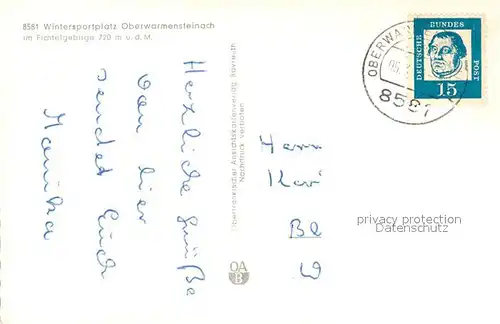 8581 Wintersportplatz Oberwarmensteinach
im Fichtelgebirge 720 m ü. d. M.
Herzliche Grüße
von hier
sendet Euch
Oberfränkischer Ansichtskartenverlag Bayreuth
Nachdruck verboten
OA
B
Herrn
Be
W
OBERWA
8581
DEUTSCHE
BUNDES
POST
15
privacy protection
Datenschutz